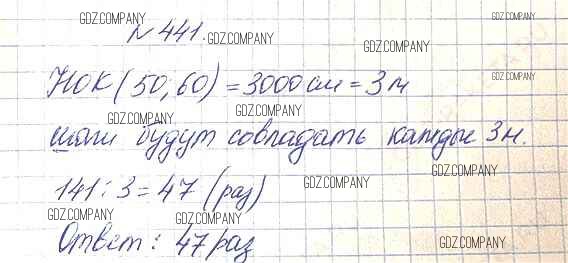 GDZ.COMPANY GDZ.COMPANY
№ 441. GDZ.COMPANY
GDZ.COMPANY
НОК (50; 60) = 3000 см = 3 м GDZ.COMPANY
GDZ.COMPANY GDZ.COMPANY
шаги будут совпадать каждые 3 м.
GDZ.COMPANY GDZ.COMPANY
141 : 3 = 47 (раз)
GDZ.COMPANY GDZ.COMPANY
Ответ: 47 раз GDZ.COMPANY